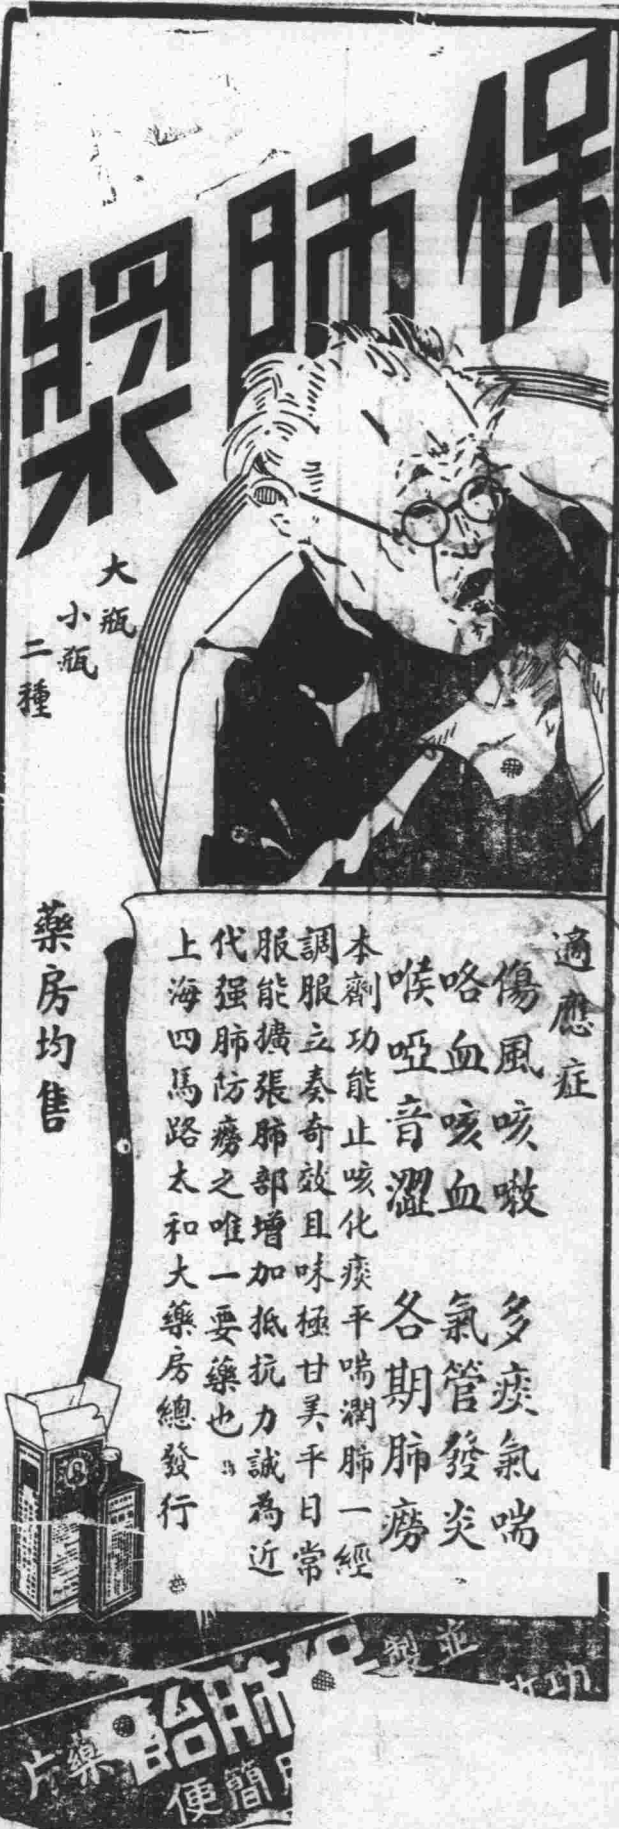 保肺漿
大瓶
小瓶
二種
藥房均售
適應症
傷風咳嗽 多痰氣喘
咯血咳血 氣管發炎
喉啞音澀 各期肺癆
本劑功能止咳化痰平喘潤肺一經
調服立奏奇效且味極甘美平日常
服能擴張肺部增加抵抗力誠為近
代强肺防癆之唯一要藥也
上海四馬路太和大藥房總發行
並製
保肺飴
藥片
功
簡便